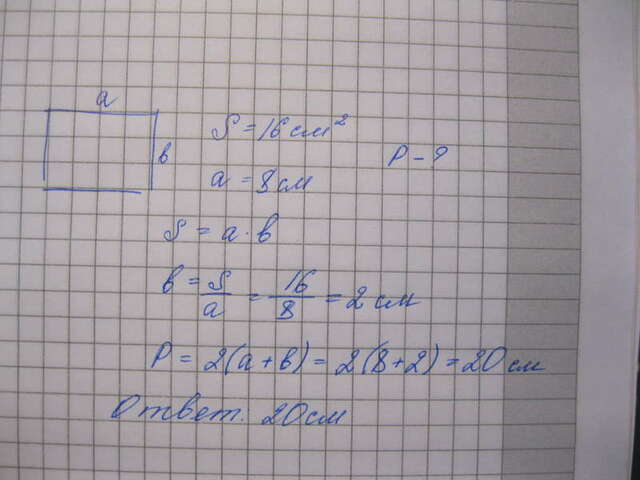 a
S = 16 см²
в
P - ?
a = 8 см
S = a · в
в = S/a = 16/8 = 2 см
P = 2(a + в) = 2(8 + 2) = 20 см
Ответ. 20 см